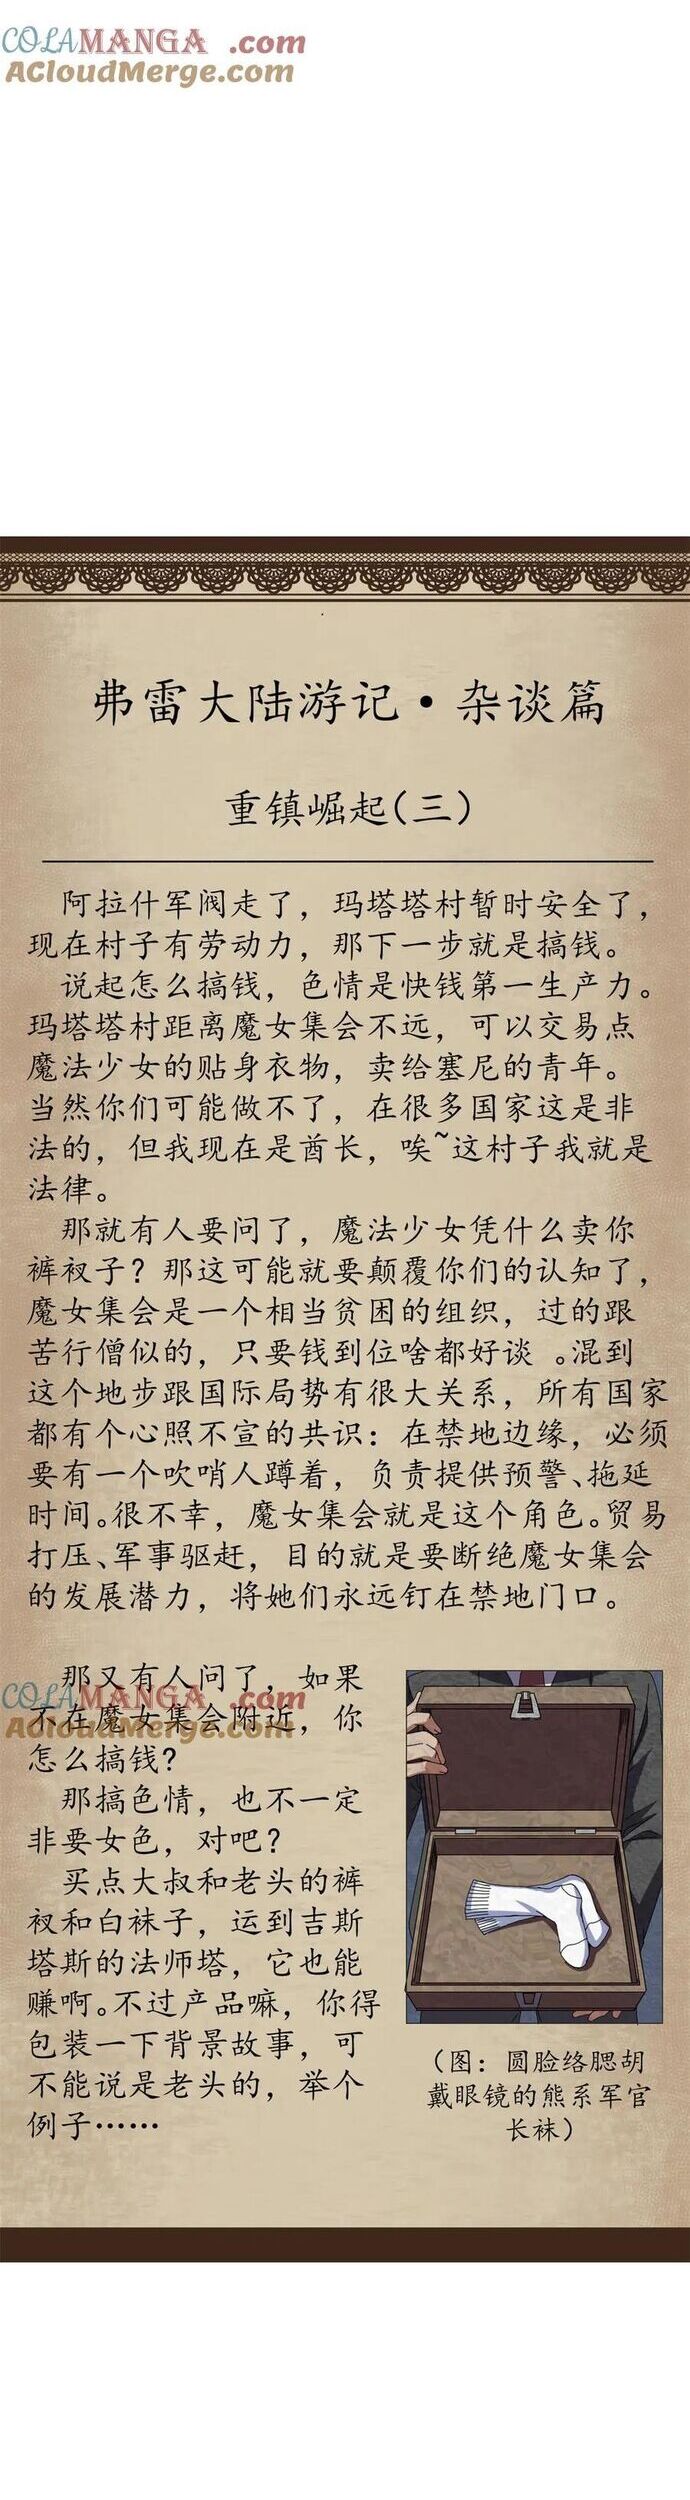 COLAMANGA .com
ACloudMerge.com
弗雷大陆游记·杂谈篇
重镇崛起(三)
阿拉什军阀走了，玛塔塔村暂时安全了，
现在村子有劳动力，那下一步就是搞钱。
说起怎么搞钱，色情是快钱第一生产力。
玛塔塔村距离魔女集会不远，可以交易点
魔法少女的贴身衣物，卖给塞尼的青年。
当然你们可能做不了，在很多国家这是非
法的，但我现在是酋长，唉~这村子我就是
法律。
那就有人要问了，魔法少女凭什么卖你
裤衩子？那这可能就要颠覆你们的认知了，
魔女集会是一个相当贫困的组织，过的跟
苦行僧似的，只要钱到位啥都好谈 。混到
这个地步跟国际局势有很大关系，所有国家
都有个心照不宣的共识：在禁地边缘，必须
要有一个吹哨人蹲着，负责提供预警、拖延
时间。很不幸，魔女集会就是这个角色。贸易
打压、军事驱赶，目的就是要断绝魔女集会
的发展潜力，将她们永远钉在禁地门口。
那又有人问了，如果
COLAMANGA .com
不在魔女集会附近，你
ACloudMerge.com
怎么搞钱？
那搞色情，也不一定
非要女色，对吧？
买点大叔和老头的裤
衩和白袜子，运到吉斯
塔斯的法师塔，它也能
赚啊。不过产品嘛，你得
包装一下背景故事，可
不能说是老头的，举个
例子……
（图：圆脸络腮胡
戴眼镜的熊系军官
长袜）